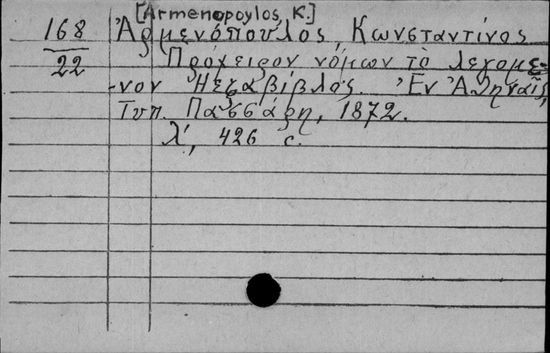 [Armenopoylos, K.]
168 Ἀρμενόπουλος, Κωνσταντίνος
22 Πρόχειρον νόμων τὸ λεγόμε-
-νον Ἡεξαβίβλος. Ἐν Ἀθηναῖς,
Τυπ. Πασσάρη, 1872.
λ', 426 с.